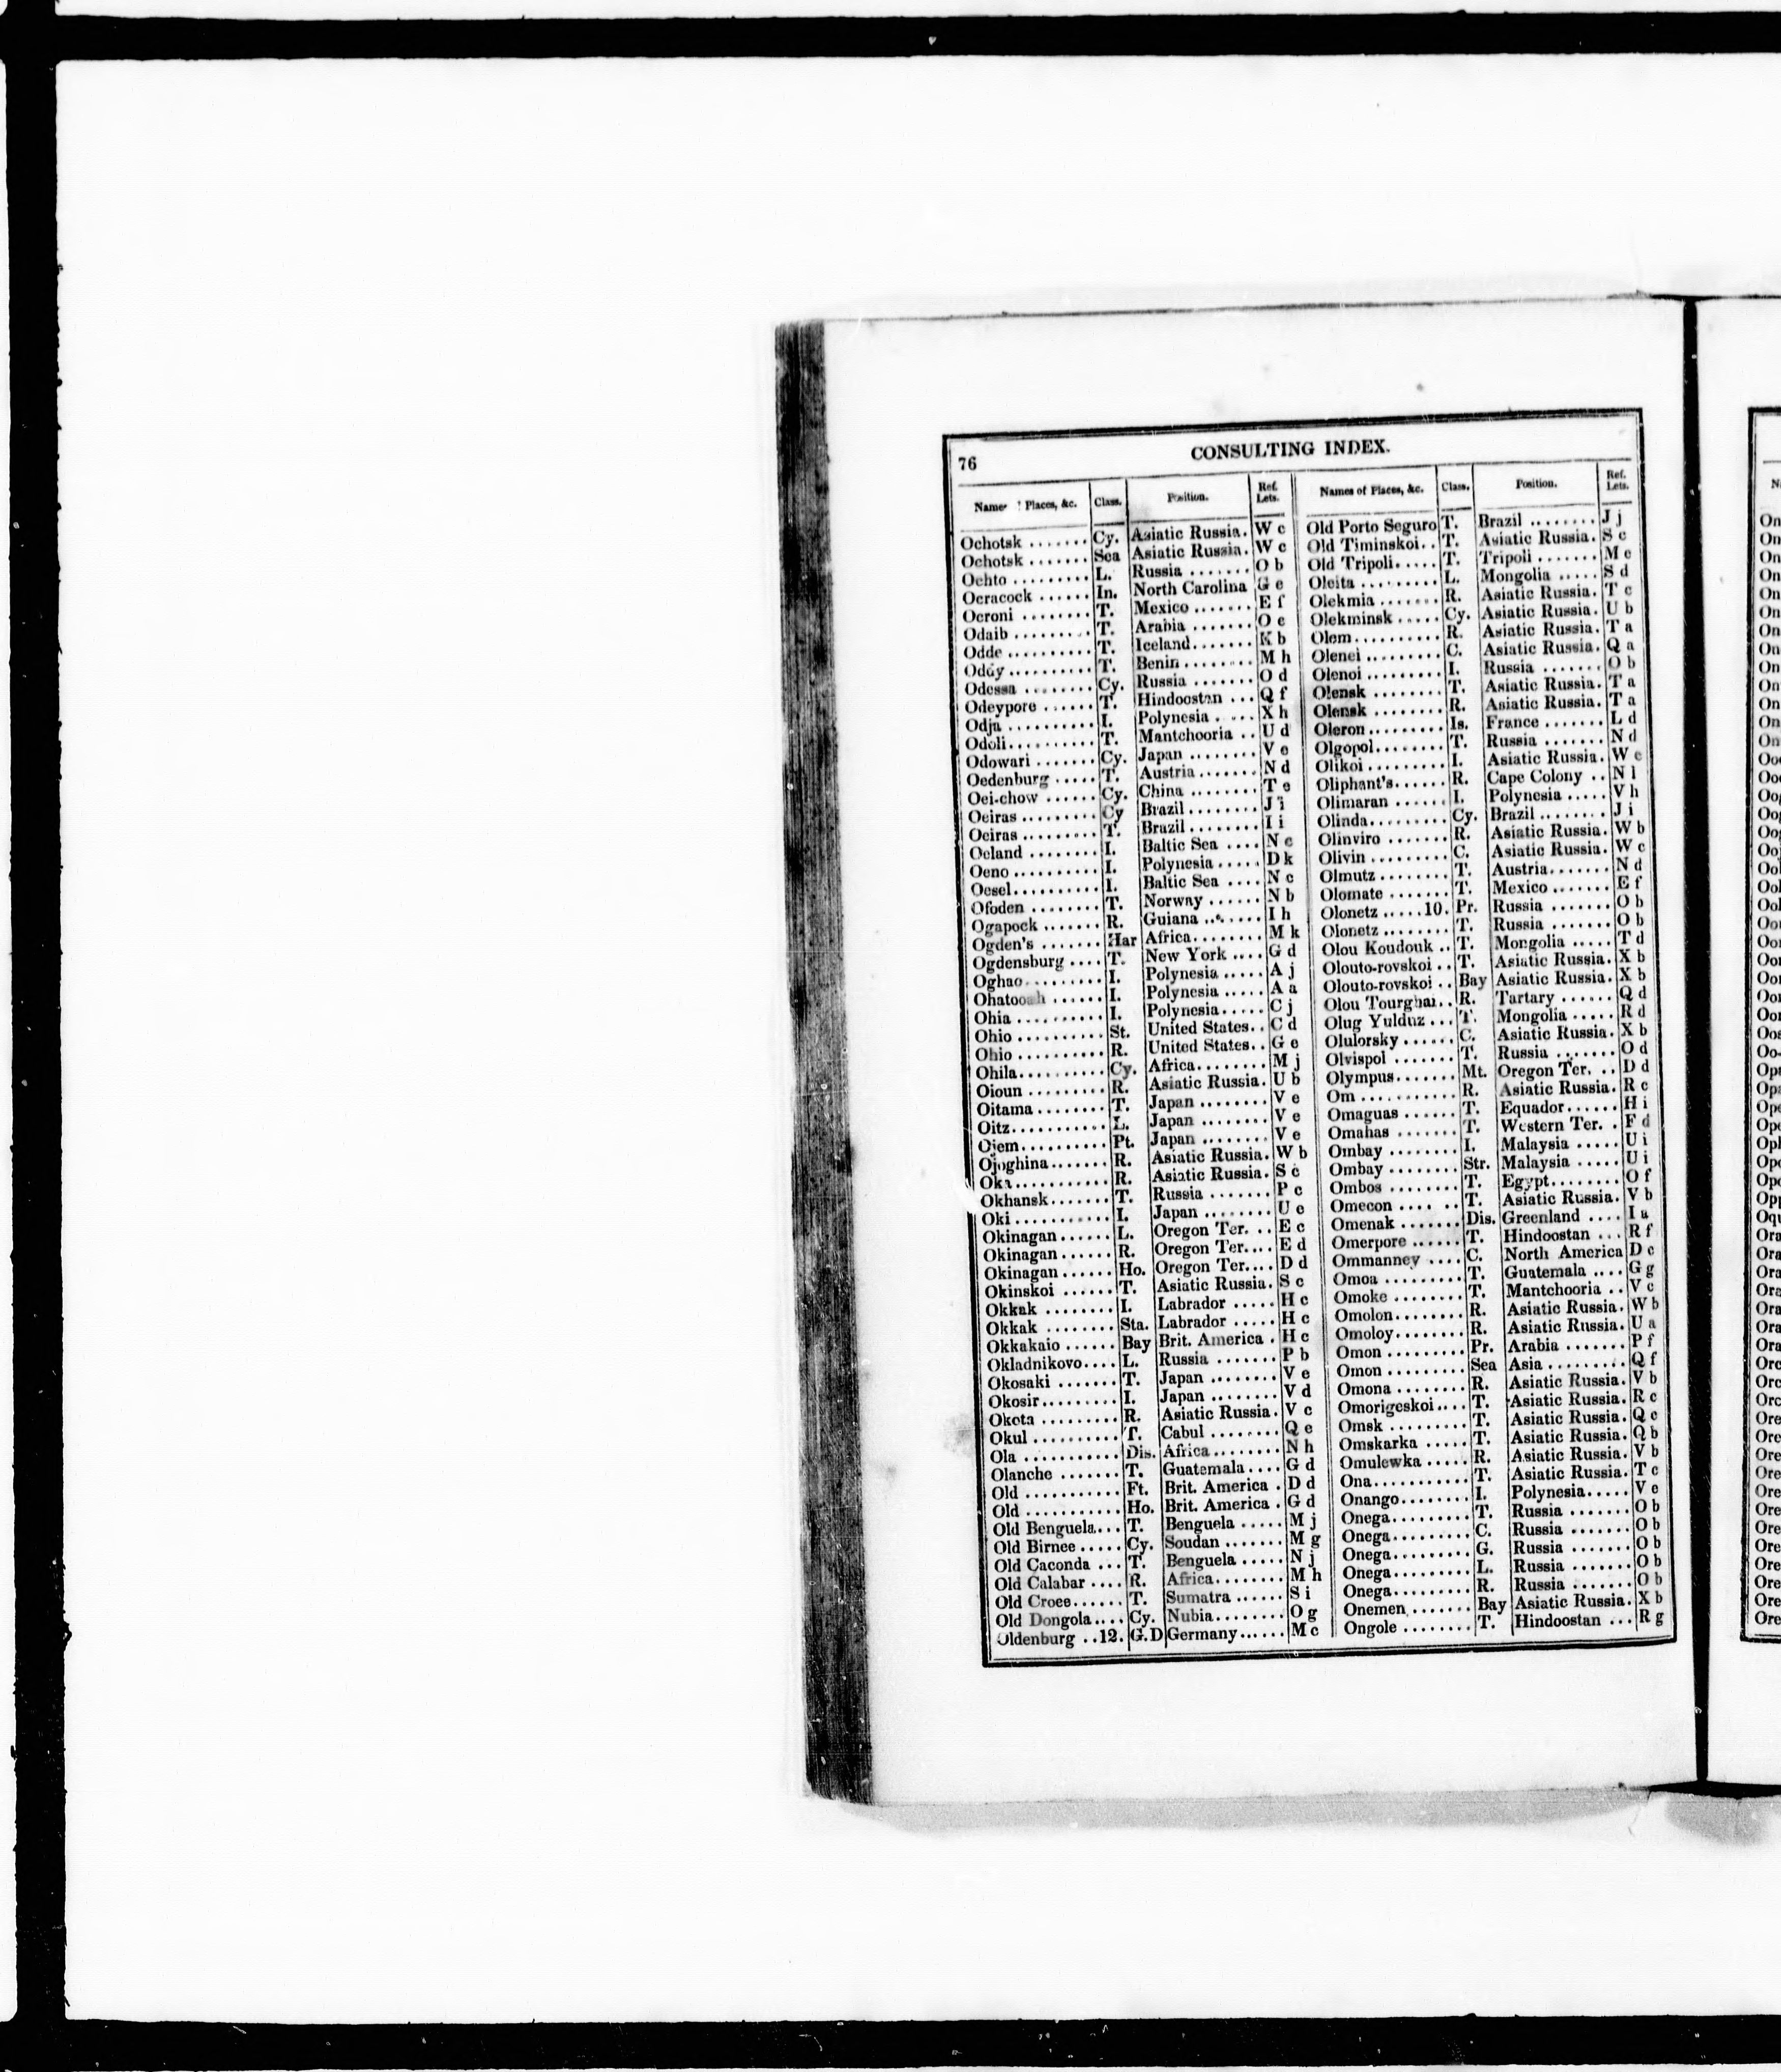 76
CONSULTING INDEX.
Places, &c. Class. Position. Ref. Lets.
Ochotsk ....... Cy. Asiatic Russia. W c
Ochotsk ....... Sea Asiatic Russia. W c
Ochto ......... L. Russia ....... O b
Ocracock ...... In. North Carolina G e
Ocroni ........ T. Mexico ....... E f
Odaib ......... T. Arabia ....... O e
Odde .......... T. Iceland....... K b
Oddy .......... T. Benin ........ M h
Odessa ........ Cy. Russia ....... O d
Odeypore ...... T. Hindoostan ... Q f
Odja .......... I. Polynesia ..... X h
Odoli.......... T. Mantchooria .. U d
Odowari ....... Cy. Japan ........ V e
Oedenburg ..... T. Austria....... N d
Oei-chow ...... Cy. China ........ T e
Oeiras ......... Cy Brazil........ J i
Oeiras ......... T. Brazil........ I i
Oeland ........ I. Baltic Sea .... N c
Oeno .......... I. Polynesia..... D k
Oesel.......... I. Baltic Sea .... N c
Ofoden ........ T. Norway ...... N b
Ogapock ....... R. Guiana ....... I h
Ogden's ....... Har Africa........ M k
Ogdensburg .... T. New York .... G d
Oghao......... I. Polynesia ..... A j
Ohatooah ...... I. Polynesia ..... A a
Ohia .......... I. Polynesia..... C j
Ohio .......... St. United States.. C d
Ohio .......... R. United States.. G e
Ohila.......... Cy. Africa........ M j
Oioun ......... R. Asiatic Russia. U b
Oitama ........ T. Japan ........ V e
Oitz........... L. Japan ........ V e
Ojem.......... Pt. Japan ........ V e
Ojoghina....... R. Asiatic Russia. W b
Oka........... R. Asiatic Russia. S c
Okhansk....... T. Russia ....... P c
Oki ........... I. Japan ........ U e
Okinagan ...... L. Oregon Ter. .. E c
Okinagan ...... R. Oregon Ter.... E d
Okinagan ...... Ho. Oregon Ter.... D d
Okinskoi ...... T. Asiatic Russia. S c
Okkak ........ I. Labrador ..... H c
Okkak ........ Sta. Labrador ..... H c
Okkakaio ...... Bay Brit. America . H c
Okladnikovo.... L. Russia ....... P b
Okosaki ....... T. Japan ........ V e
Okosir......... I. Japan ........ V d
Okota ......... R. Asiatic Russia. V c
Okul .......... T. Cabul ........ Q e
Ola ........... Dis. Africa........ N h
Olanche ....... T. Guatemala.... G d
Old ........... Ft. Brit. America . D d
Old ........... Ho. Brit. America . G d
Old Benguela... T. Benguela ..... M j
Old Birnee ..... Cy. Soudan ....... M g
Old Caconda ... T. Benguela ..... N j
Old Calabar .... R. Africa........ M h
Old Croee...... T. Sumatra ...... S i
Old Dongola.... Cy. Nubia........ O g
Oldenburg ..12. G.D Germany...... M c
Names of Places, &c. Class. Position. Ref. Lets.
Old Porto Seguro T. Brazil ........ J j
Old Timinskoi.. T. Asiatic Russia. S c
Old Tripoli..... T. Tripoli ....... M e
Oleita ......... L. Mongolia ..... S d
Olekmia ....... R. Asiatic Russia. T c
Olekminsk ..... Cy. Asiatic Russia. U b
Olem.......... R. Asiatic Russia. T a
Olenei ......... C. Asiatic Russia. Q a
Olenoi ......... I. Russia ....... O b
Olensk ........ T. Asiatic Russia. T a
Olensk ........ R. Asiatic Russia. T a
Oleron......... Is. France ....... L d
Olgopol........ T. Russia ....... N d
Olikoi ......... I. Asiatic Russia. W c
Oliphant's...... R. Cape Colony .. N l
Olimaran ...... I. Polynesia ..... V h
Olinda......... Cy. Brazil ........ J i
Olinviro ....... R. Asiatic Russia. W b
Olivin ......... C. Asiatic Russia. W c
Olmutz ........ T. Austria....... N d
Olomate ....... T. Mexico ....... E f
Olonetz .....10. Pr. Russia ....... O b
Olonetz ........ T. Russia ....... O b
Olou Koudouk .. T. Mongolia ..... T d
Olouto-rovskoi .. T. Asiatic Russia. X b
Olouto-rovskoi .. Bay Asiatic Russia. X b
Olou Tourghai.. R. Tartary ...... Q d
Olug Yulduz ... T. Mongolia ..... R d
Olulorsky ...... C. Asiatic Russia. X b
Olvispol ....... T. Russia ....... O d
Olympus....... Mt. Oregon Ter. .. D d
Om ........... R. Asiatic Russia. R c
Omaguas ...... T. Equador...... H i
Omahas ....... T. Western Ter. . F d
Ombay ........ I. Malaysia ..... U i
Ombay ........ Str. Malaysia ..... U i
Ombos ........ T. Egypt........ O f
Omecon ...... T. Asiatic Russia. V b
Omenak ....... Dis. Greenland .... I a
Omerpore ...... T. Hindoostan ... R f
Ommanney .... C. North America D c
Omoa ......... T. Guatemala .... G g
Omoke ........ T. Mantchooria .. V c
Omolon........ R. Asiatic Russia. W b
Omoloy........ R. Asiatic Russia. U a
Omon ......... Pr. Arabia ....... P f
Omon ......... Sea Asia ......... Q f
Omona ........ R. Asiatic Russia. V b
Omorigeskoi.... T. Asiatic Russia. R c
Omsk ......... T. Asiatic Russia. Q c
Omskarka ..... T. Asiatic Russia. Q b
Omulewka ..... R. Asiatic Russia. V b
Ona........... T. Asiatic Russia. T c
Onango........ I. Polynesia..... V e
Onega......... T. Russia ....... O b
Onega......... C. Russia ....... O b
Onega......... G. Russia ....... O b
Onega......... L. Russia ....... O b
Onega......... R. Russia ....... O b
Onemen ....... Bay Asiatic Russia. X b
Ongole ........ T. Hindoostan ... R g